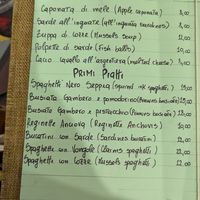 Caponata di mele (Apple caponata) 8,00
Sarde all'inguazzé (all'inguazzé sardines) 8,00
Zuppa di Cozze (Mussels soup) 12,00
Polpette di Sarde (Fish balls) 10,00
Cacio cavallo all'argentiera (melted cheese) 8,00
PRIMI Piatti
Spaghetti Nero Seppia (squid ink spaghetti) 15,00
Busiata Gambero e pomodorino
Busiata Gambero e pistacchio
Reginette Ancova (Reginette Anchovis) 10,00
Bucatini con Sarde (Sardines bucatini) 12,00
Spaghetti con Vongole (Clams spaghetti)
Spaghetti con Cozze (Mussels spaghetti) 12.00